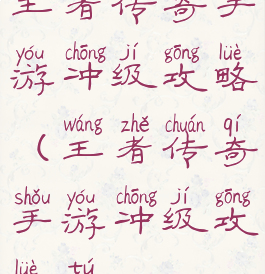 王者传奇手
yóu chōng jí gōng lüè
游冲级攻略
wáng zhě chuán qí
（王者传奇
shǒu yóu chōng jí gōng
手游冲级攻
lüè tú